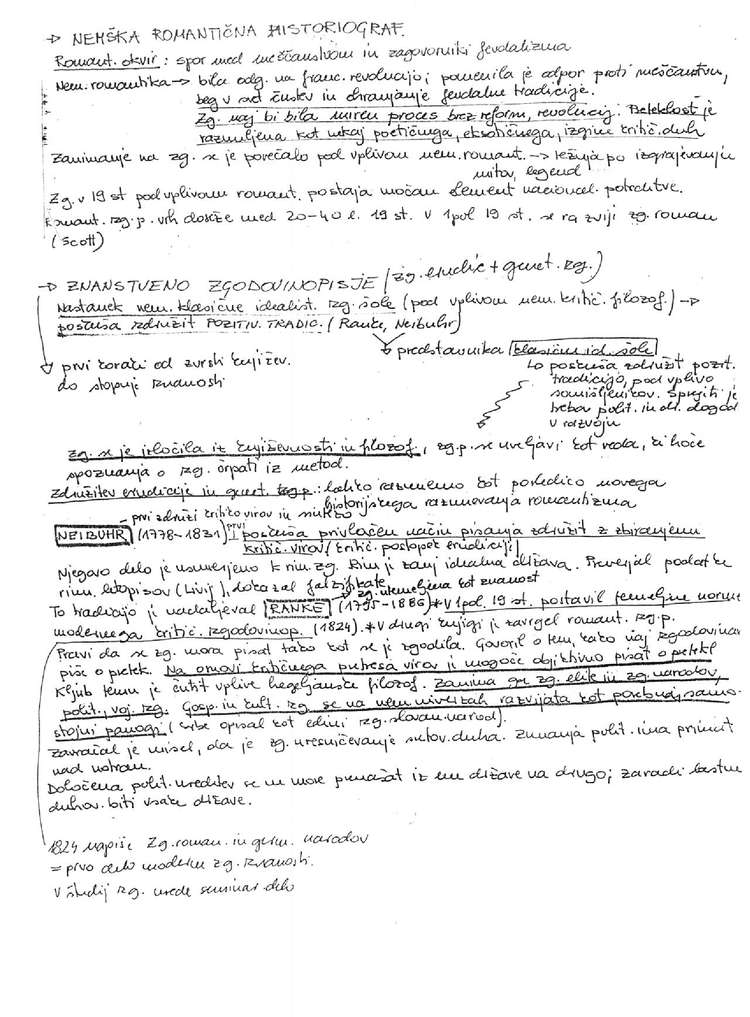 → NEMŠKA ROMANTIČNA HISTORIOGRAF.
Romant. okvir : spor med meščanstvom in zagovorniki fevdalizma
Nem. romantika → bila odg. na franc. revolucijo; pomenila je odpor proti meščanstvu,
beg v svet čustev in ohranjanje fevdalne tradicije.
Zg. naj bi bila miren proces brez reform, revolucij. Preteklost je
razumljena kot nekaj poetičnega, eksotičnega, izgine kritič. duh
Zanimanje na zg. se je povečalo pod vplivom nem. romant. → težnja po izgrajevanju
mitov, legend
Zg. v 19 st pod vplivom romant. postaja močan element nacional. potrditve.
Romant. zg. p. vrh doseže med 20-40 l. 19 st. V 1pol 19 st. se razvije zg. roman
(Scott)
→ ZNANSTVENO ZGODOVINOPISJE (zg. erudic + genet. zg.)
Nastanek nem. klasične idealist. zg. šole (pod vplivom nem. kritič. filozof.) →
poskuša združit POZITIV. TRADIC. (Ranke, Neibuhr)
predstavnika klasične id. šole
prvi koraki od zvrsti književ.
do stopnje znanosti
to poskuša združit pozit.
tradicijo, pod vplivo
somišljenikov. Sprejeti je
treba polit. in dr. dogod
v razvoju
Zg. se je izločila iz književnosti in filozof., zg.p. se uveljavi kot veda, ki hoče
spoznanja o zg. črpati iz metod.
Združitev erudicije in genet. zg.p.: lahko razumemo kot posledico novega
historijskega razumevanja romantizma
prvi združi kritiko virov in sintezo
NEIBUHR (1778-1831) prvi poskuša privlačen način pisanja združit z zbiranjem
kritič. virov (kritič. postopek erudicije)
Njegovo delo je usmerjeno k rim. zg. Rim je zanj idealna država. Preverjal podatke
rim. letopisov (Livij), dokazal falzifikate
zg. utemeljena kot znanost
To tradicijo je nadaljeval RANKE (1795-1886) * V 1pol. 19 st. postavil temeljne norme
modernega kritič. zgodovinop. (1824). * V drugi knjigi je zavrgel romant. zg.p.
Pravi da se zg. mora pisat tako kot se je zgodila. Govoril o tem, kako naj zgodovinar
piše o pretek. Na osnovi kritičnega pretresa virov je mogoče objektivno pisat o pretekl
Kljub temu je čutit vplive hegeljanske filozof. Zanima ga zg. elite in zg. narodov,
polit., voj. zg. Gosp. in kult. zg. se na nem univerzah razvijata kot posebni samo-
stojni panogi (Srbe opisal kot edini zg. slovan. narod).
Zavračal je misel, da je zg. uresničevanje svetov. duha. Zunanja polit. ima primat
nad notran.
Določena polit. ureditev se ne more prenašat iz ene države na drugo; zaradi lastne
duhov. biti vsake države.
1824 napiše Zg. roman. in germ. narodov
= prvo delo modern zg. znanosti.
V študij zg. uvede seminar. delo